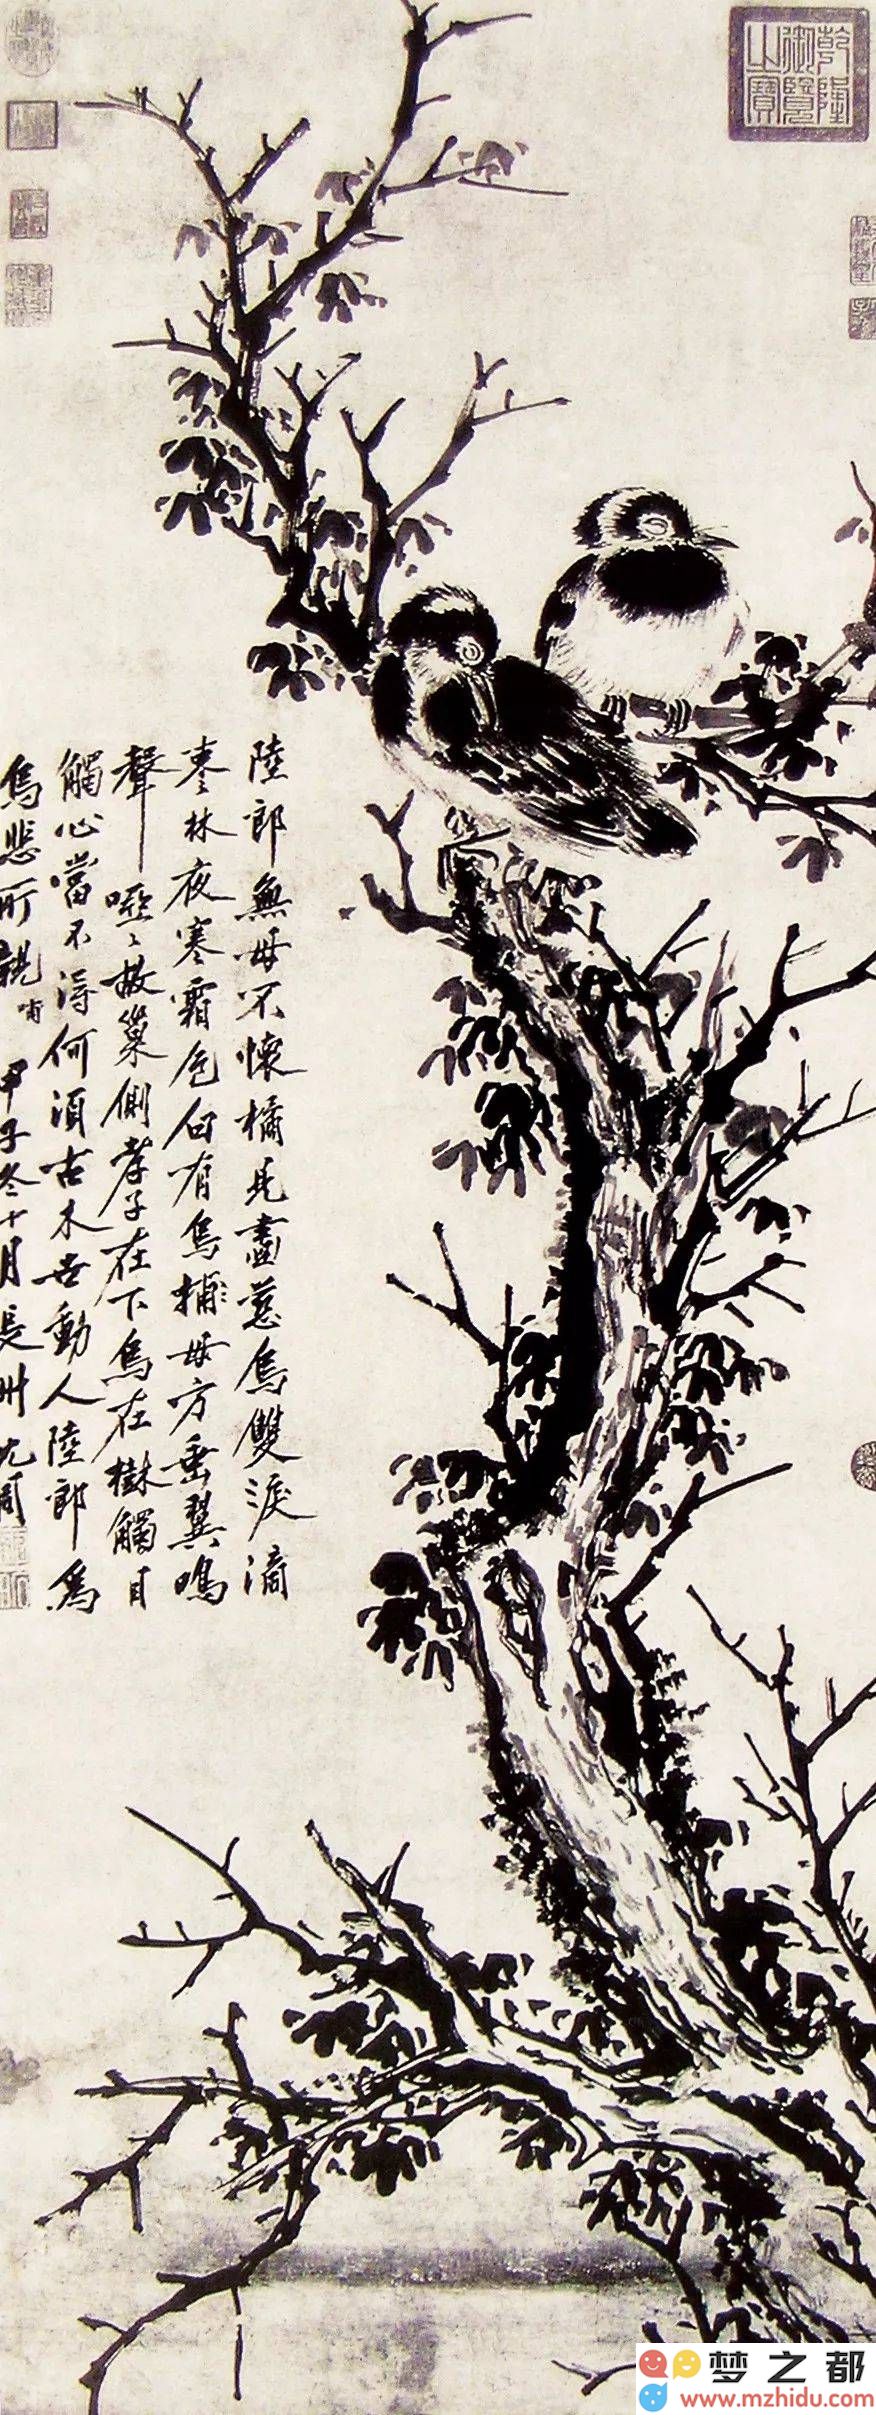 乾隆御覽之寶
陸郎無母不懷橘見畫慈烏雙淚滴
枣林夜寒霜色白有烏捕母方垂翼鳴
聲啞〻故巢側孝子在下烏在樹觸目
觸心當不得何須古木世動人陸郎為
烏悲所親 哺 甲子冬十月長州沈周
梦之都
www.mzhidu.com